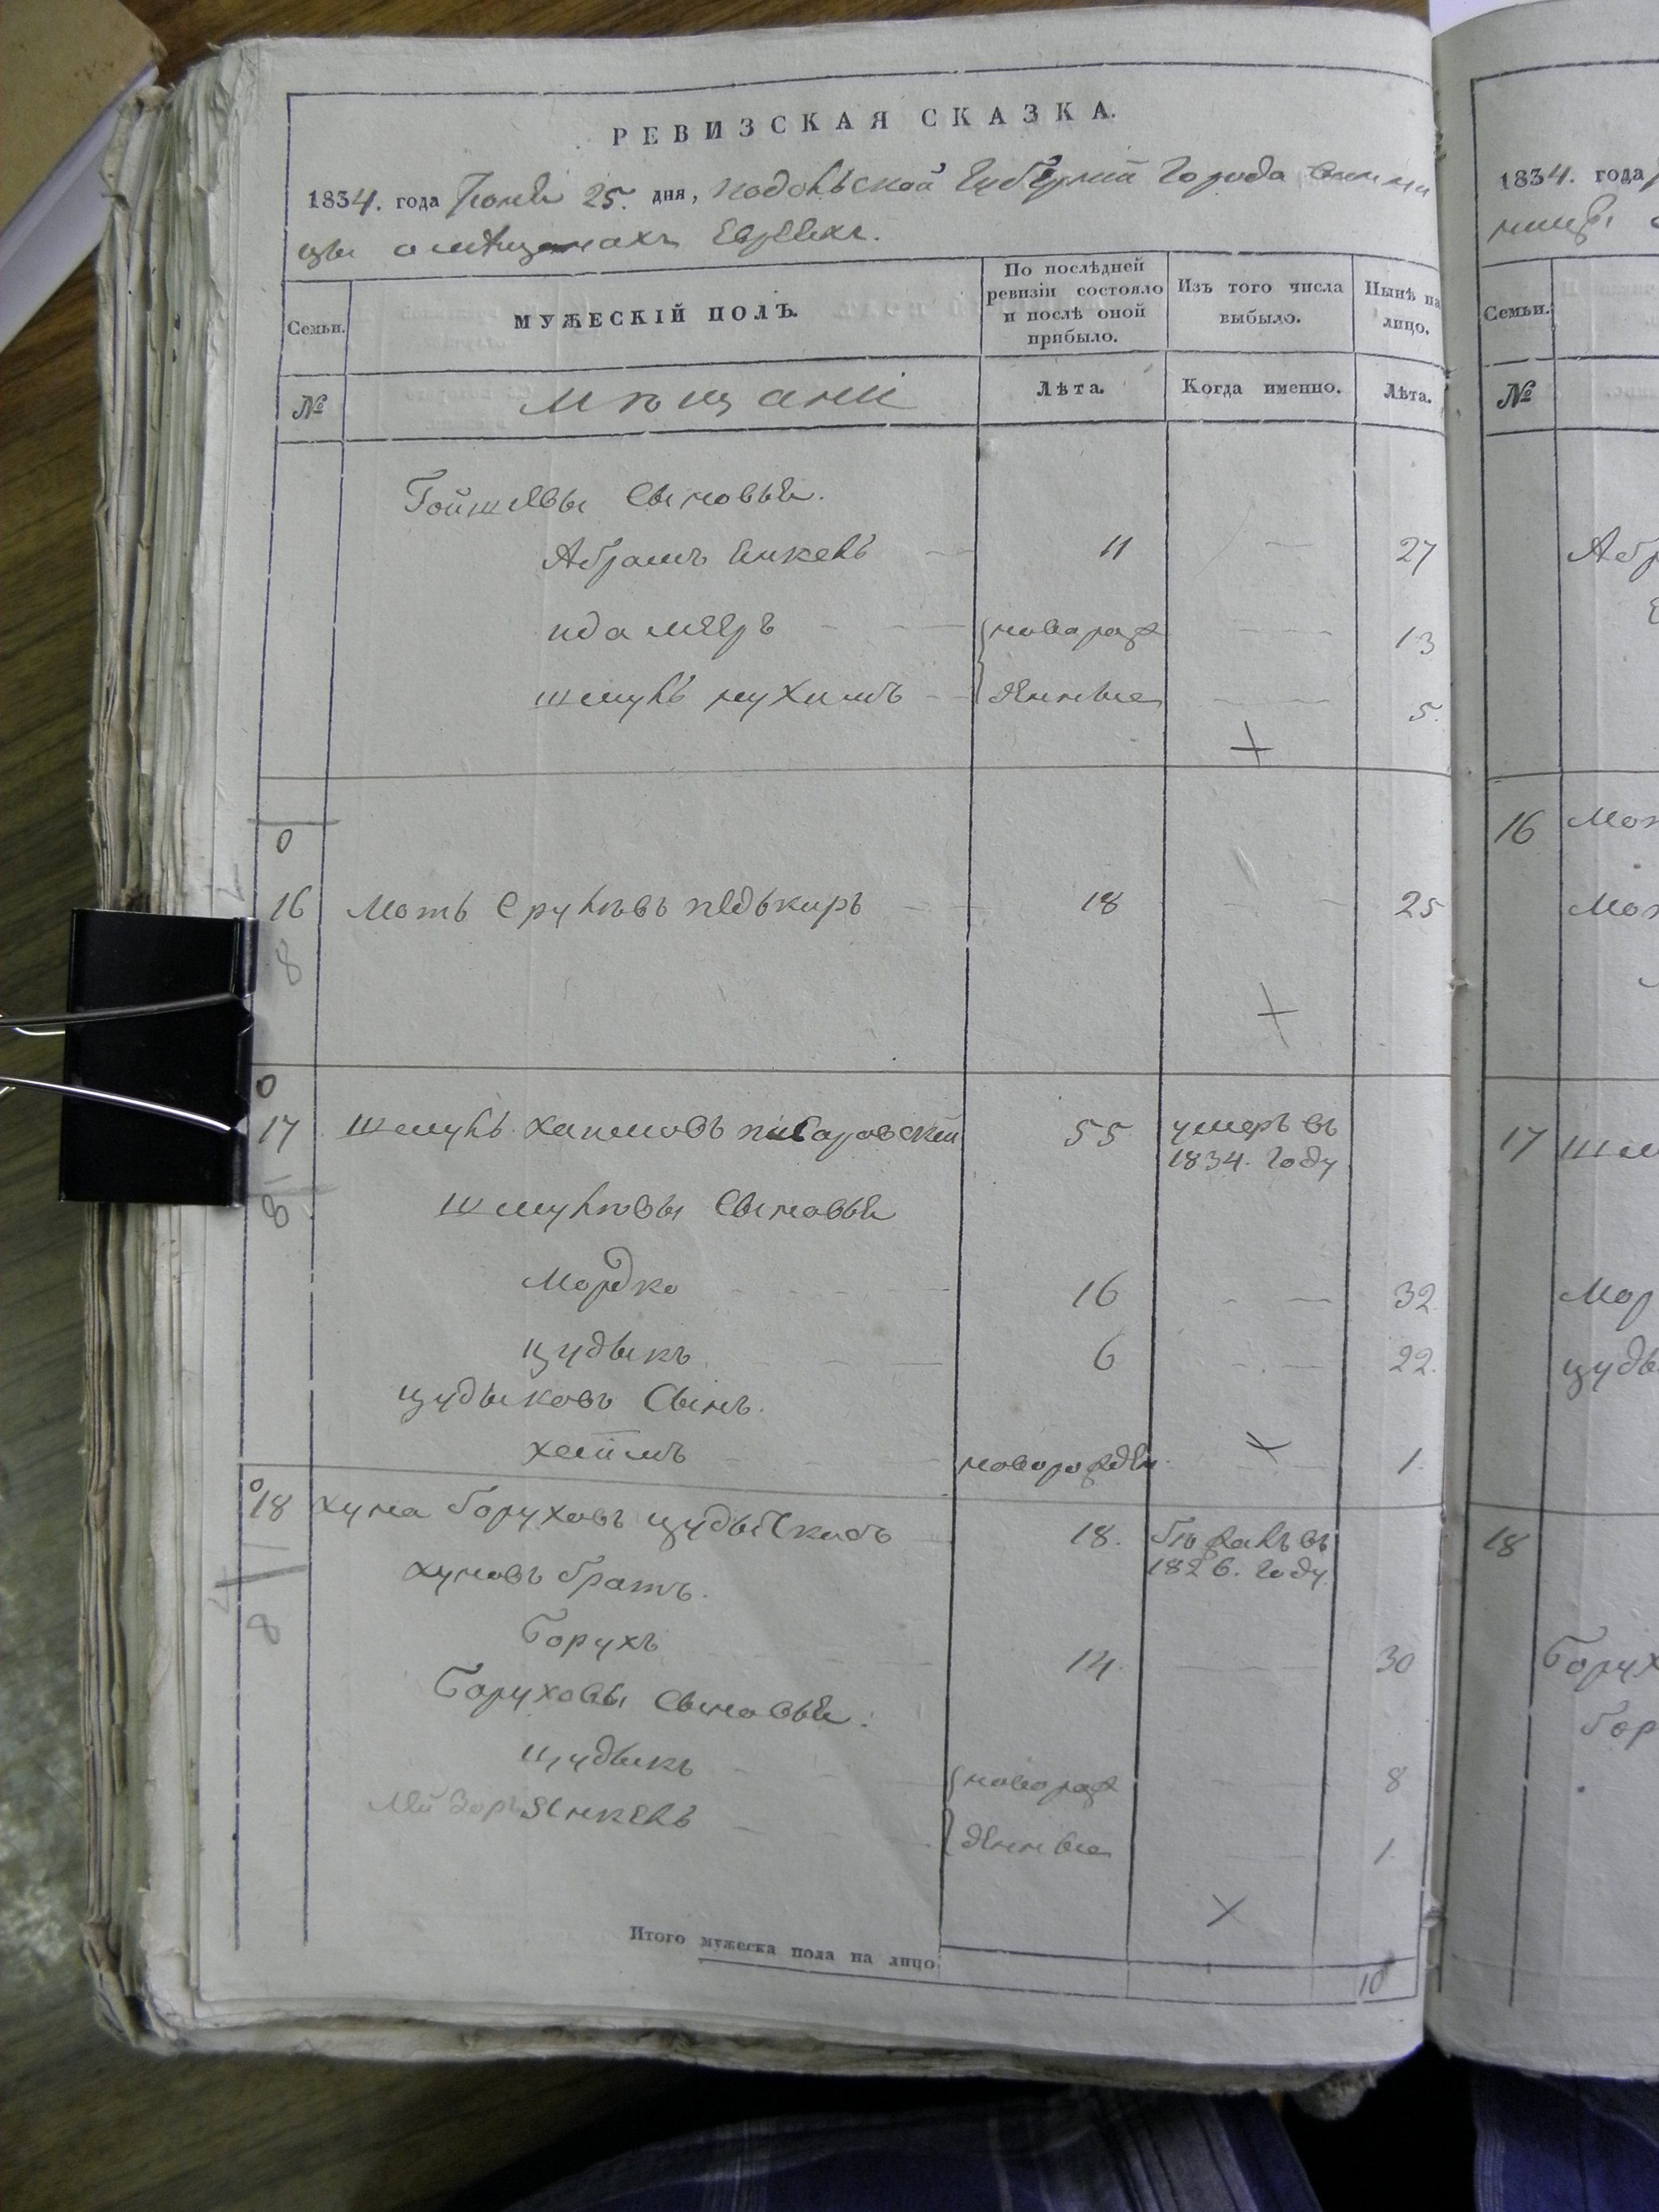 РЕВИЗСКАЯ СКАЗКА.
1834. года Іюня 25. дня, Подольской Губерніи Города Винни
цы о мѣщанахъ Евреяхъ.
Семьи.
МУЖЕСКІЙ ПОЛЪ.
По послѣдней ревизіи состояло и послѣ оной прибыло.
Изъ того числа выбыло.
Нынѣ на лицо.
№
Мѣщане
Лѣта.
Когда именно.
Лѣта.
сыновья.
Абрамъ Янкель 11 27
меръ новорож 13
Шмуль Нухимъ денные 5.
0
16 Моть Срулевъ 18 25
8
0
17 Шмуль Хаимовъ 55 умеръ въ
1834. году
8
Шмулевы сыновья
Мордко 16 32
Цудыкъ 6 22.
Цудыковъ сынъ.
Хаимъ новорожден. 1.
0
18 Хуна Боруховъ 18. бѣжалъ въ
1826. году
Хуновъ братъ.
8
Борухъ 14. 30
Боруховы сыновья:
Цудыкъ новорож 8
Янкель денные 1.
Итого мужеска пола на лицо 10
1834. года
№
Семьи.
Абр
16 Мот
Мот
17 Шм
Мор
Цуды
18
Борух
Бор